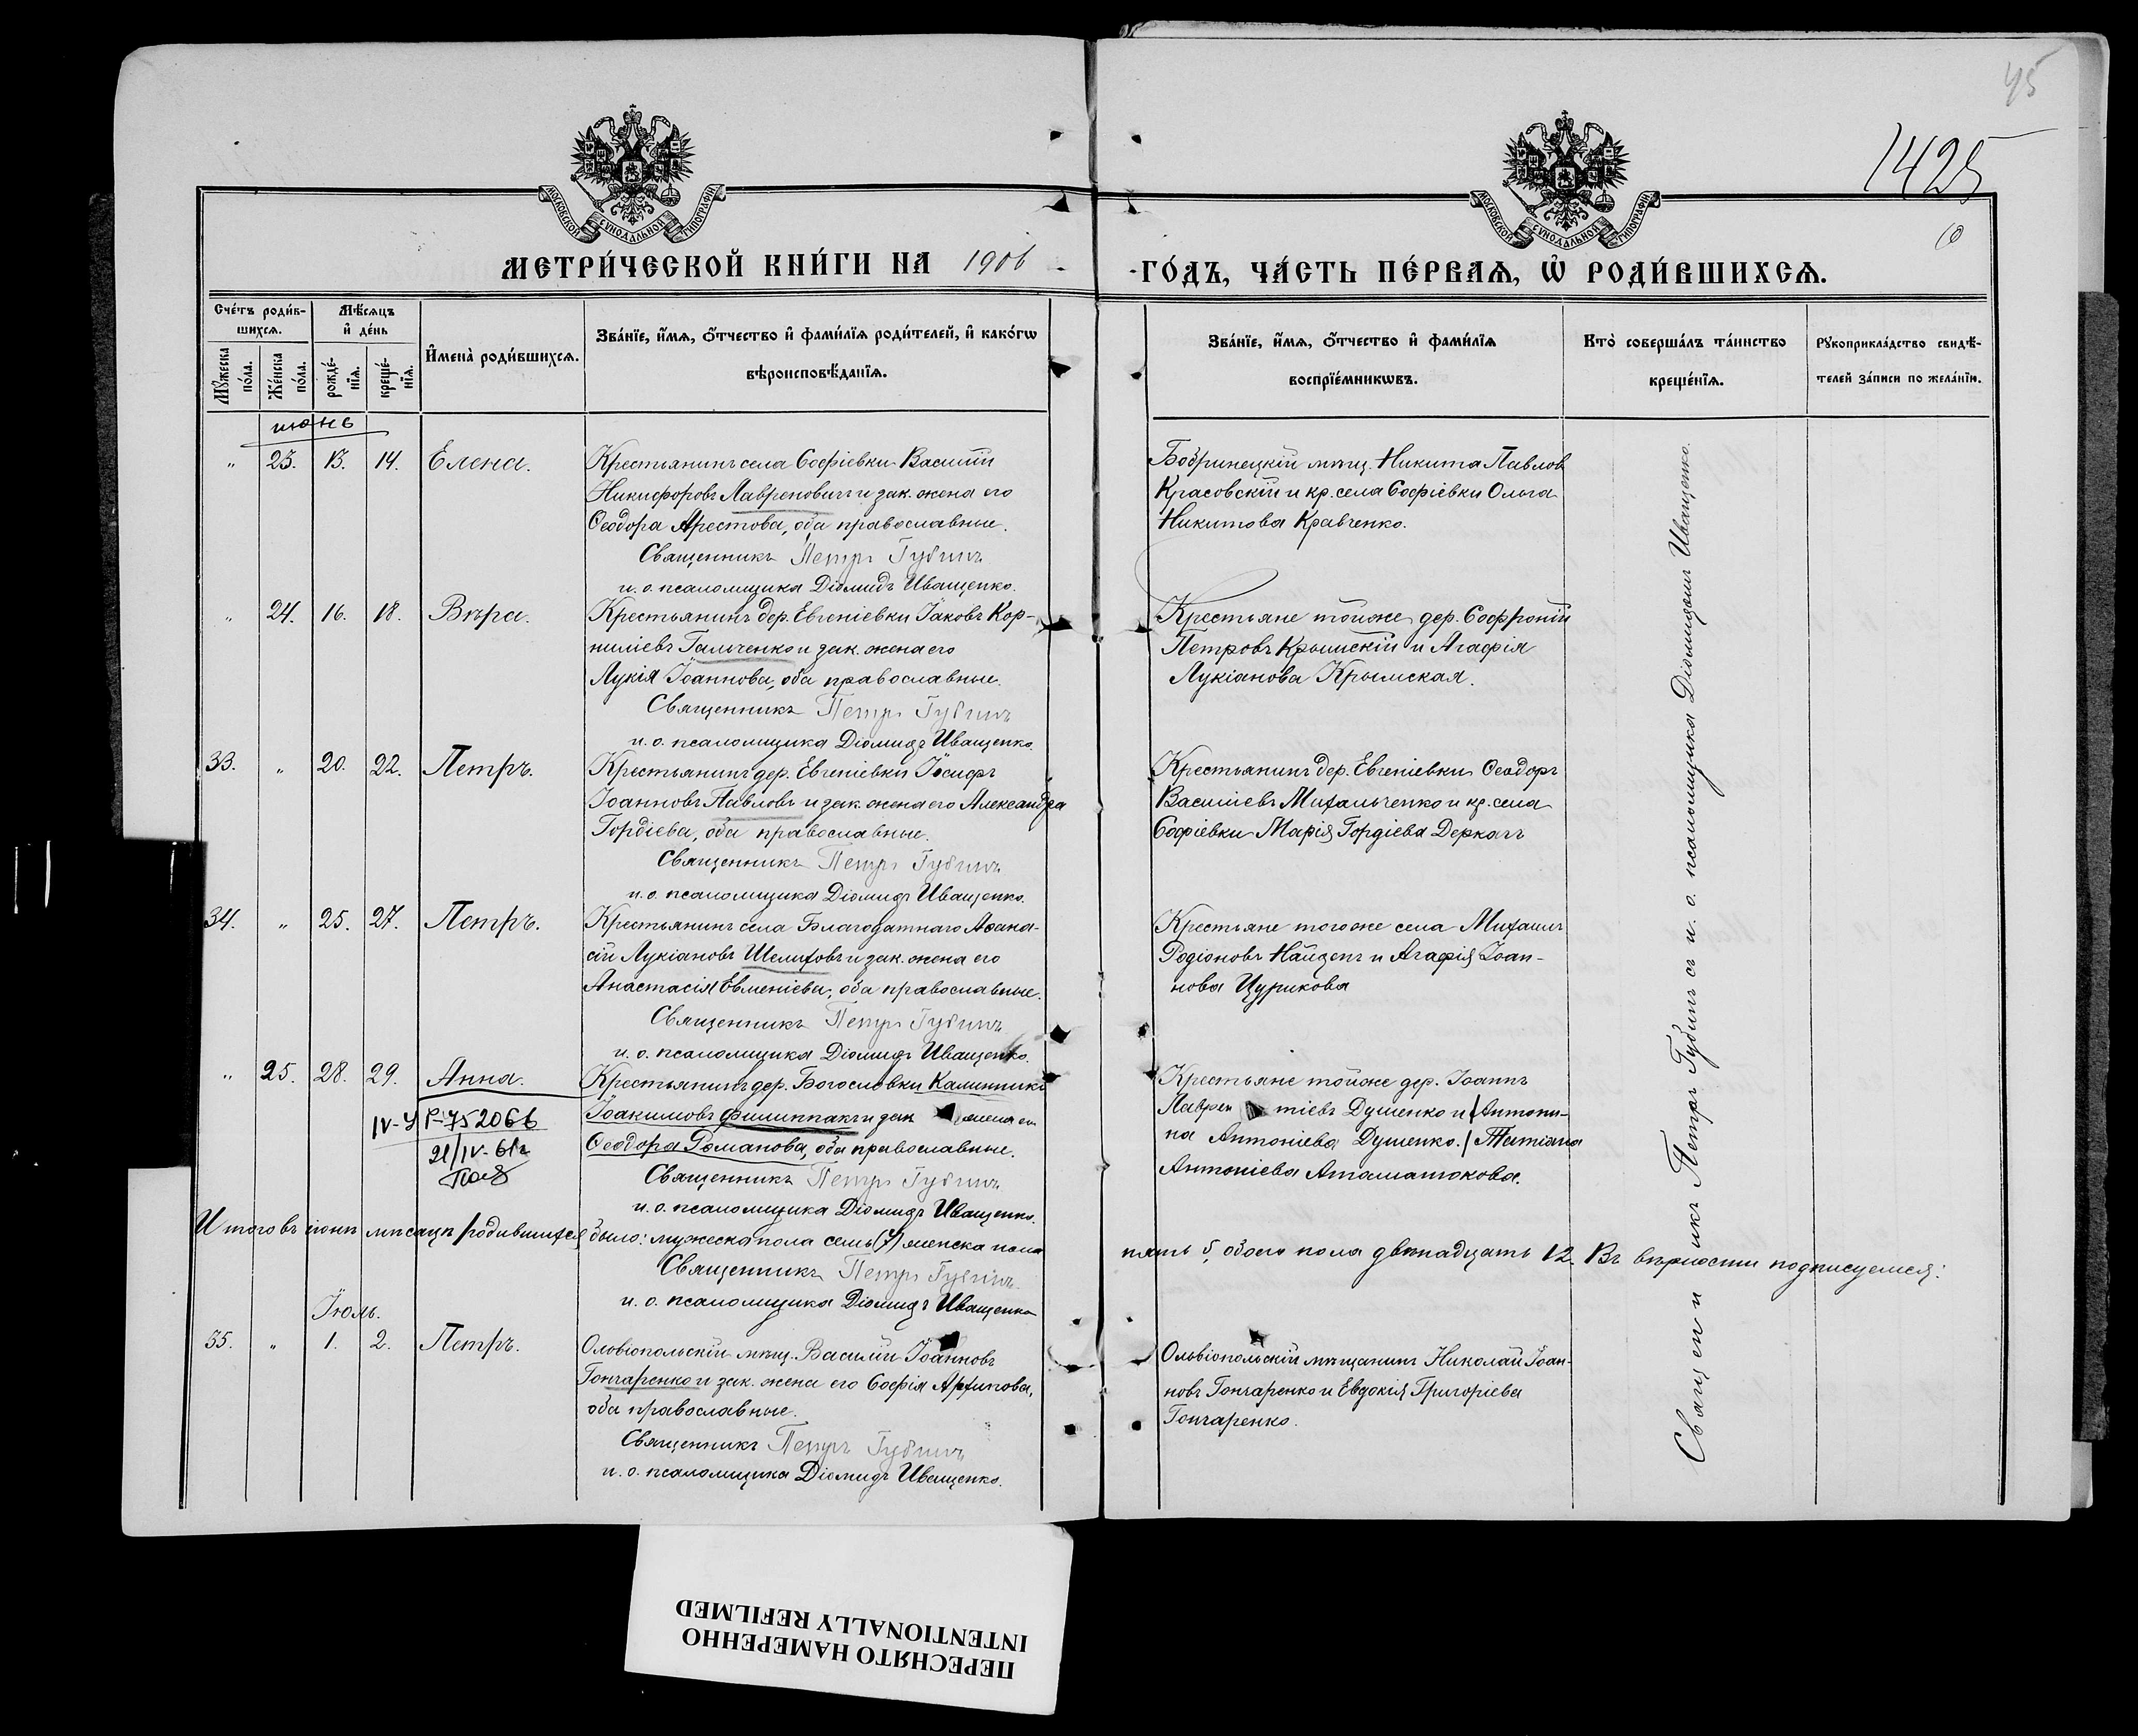 45
1425
10
МОСКОВСКОЙ СУНОДАЛЬНОЙ ТИПОГРАФІИ
МОСКОВСКОЙ СУНОДАЛЬНОЙ ТИПОГРАФІИ
МЕТРИ́ЧЕСКОЙ КНИ́ГИ НА 1906
ГО́ДЪ, ЧА́СТЬ ПЕ́РВАѦ, Ѡ҆ РОДИ́ВШИХСѦ.
Сче́тъ роди́в-
шихсѧ.
Мꙋ́жеска
по́ла.
Же́нска
по́ла.
Мѣ́сѧцъ
и҆ де́нь
рожде́-
нїѧ.
креще́-
нїѧ.
И҆мена̀ роди́вшихсѧ.
Зва́нїе, и҆́мѧ, ѻ҆́тчество и҆ фами́лїѧ роди́телей, и҆ како́гѡ
вѣроисповѣ́данїѧ.
Зва́нїе, и҆́мѧ, ѻ҆́тчество и҆ фами́лїѧ
воспрїе́мникѡвъ.
Кто̀ соверша́лъ та́инство
креще́нїѧ.
Рꙋкоприкла́дство свидѣ́-
телей за́писи по жела́нїю.
июнь
" 23. 13. 14. Елена.
Крестьянинъ села Софіевки Василій
Никифоровъ Лавреновичъ и зак. жена его
Ѳеодора Арестова, оба православные.
Священникъ Петръ Губинъ
и. о. псаломщика Діомидъ Иващенко.
Бобринецкій мѣщ. Никита Павловъ
Красовскій и кр. села Софіевки Ольга
Никитова Кравченко.
" 24. 16. 18. Вѣра.
Крестьянинъ дер. Евгеніевки Іаковъ Кор-
ниліевъ Гальченко и зак. жена его
Лукія Іоаннова, оба православные.
Священникъ Петръ Губинъ
и. о. псаломщика Діомидъ Иващенко.
Крестьяне тойже дер. Софроній
Петровъ Крымскій и Агафія
Лукіанова Крымская.
33. " 20. 22. Петръ.
Крестьянинъ дер. Евгеніевки Іосифъ
Іоанновъ Павловъ и зак. жена его Александра
Гордіева, оба православные.
Священникъ Петръ Губинъ
и. о. псаломщика Діомидъ Иващенко.
Крестьянинъ дер. Евгеніевки Ѳеодоръ
Василіевъ Михальченко и кр. села
Софіевки Марія Гордіева Деркачъ
34. " 25. 27. Петръ.
Крестьянинъ села Благодатнаго Аѳана-
сій Лукіановъ Шелиховъ и зак. жена его
Анастасія Евменіева, оба православные.
Священникъ Петръ Губинъ
и. о. псаломщика Діомидъ Иващенко.
Крестьяне тогоже села Михаилъ
Родіоновъ Найденъ и Агафія Іоан-
нова Цурикова
" 25. 28. 29. Анна.
IV-УР-752066
21/IV-61г
Крестьянинъ дер. Богословки Калинникъ
Іоакимовъ Филиппакъ и зак жена его
Ѳеодора Романова, оба православные.
Священникъ Петръ Губинъ
и. о. псаломщика Діомидъ Иващенко.
Крестьяне тойже дер. Іоаннъ
Лаврентіевъ Душенко и /Антони-
на Антоніева Душенко./ Татіана
Антоніева Атаматокова.
Итого въ іюнѣ мѣсяцѣ родившихся было: мужеска пола семь (7) женска пола
пять 5, обоего пола двѣнадцать 12. Въ вѣрности подписуемся:
Священникъ Петръ Губинъ
и. о. псаломщика Діомидъ Иващенко
Іюль.
35. " 1. 2. Петръ.
Ольвіопольскій мѣщ. Василій Іоанновъ
Гончаренко и зак. жена его Софія Архипова,
оба православные.
Священникъ Петръ Губинъ
и. о. псаломщика Діомидъ Иващенко.
Ольвіопольскій мѣщанинъ Николай Іоан-
новъ Гончаренко и Евдокія Григоріева
Гончаренко.
Священникъ Петръ Губинъ съ и. о. псаломщика Діомидомъ Иващенко.
ПЕРЕСНЯТО НАМЕРЕННО
INTENTIONALLY REFILMED